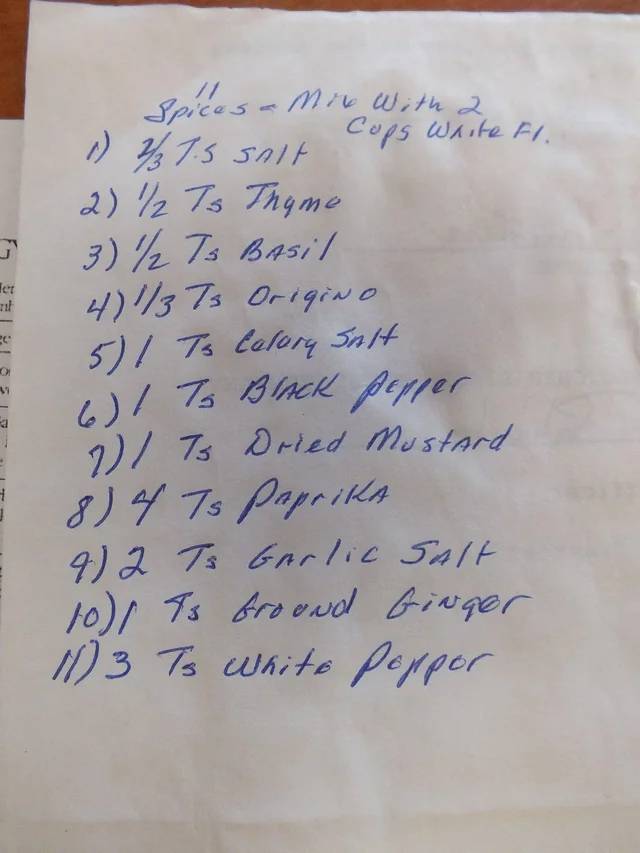 11
Spices - Mix With 2
Cups White Fl.
1) 2/3 T.S SAlt
2) 1/2 Ts Thyme
3) 1/2 Ts BAsil
4) 1/3 Ts OrigiNo
5) 1 Ts Celary SAlt
6) 1 Ts BlACK Pepper
7) 1 Ts Dried MustArd
8) 4 Ts PApriKA
9) 2 Ts GArlic SAlt
10) 1 Ts GrouNd GiNger
11) 3 Ts White Pepper